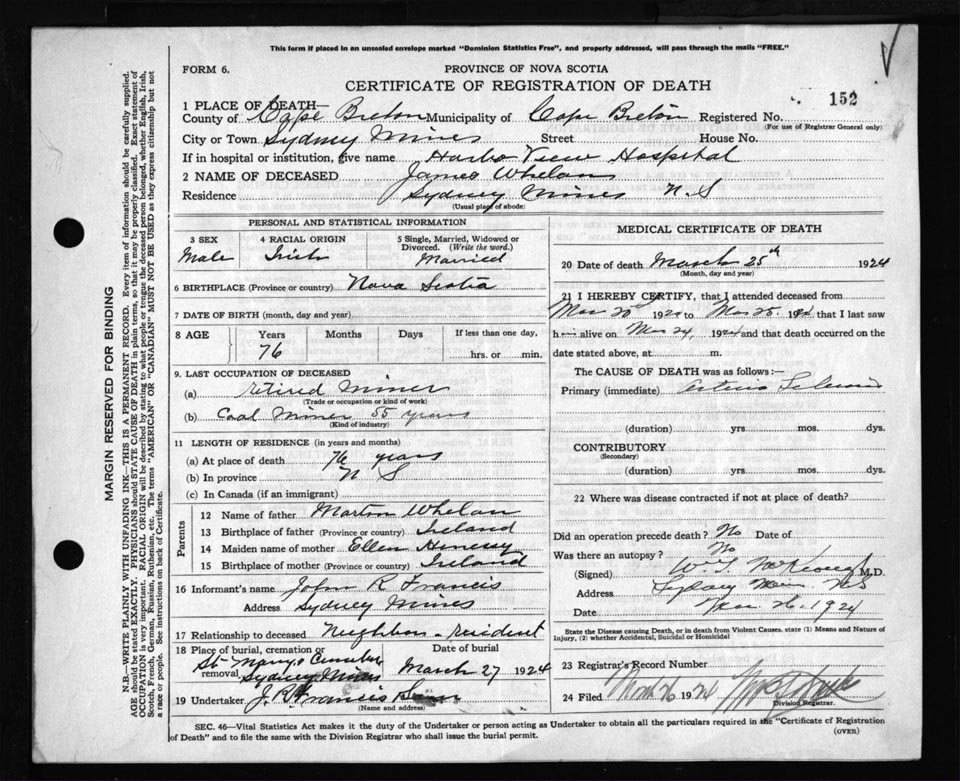 This form if placed in an unsealed envelope marked "Dominion Statistics Free", and properly addressed, will pass through the mails "FREE."
FORM 6.
PROVINCE OF NOVA SCOTIA
CERTIFICATE OF REGISTRATION OF DEATH
152
1 PLACE OF DEATH—
County of Cape Breton Municipality of Cape Breton Registered No.
(For use of Registrar General only)
City or Town Sydney Mines Street House No.
If in hospital or institution, give name Harbor View Hospital
2 NAME OF DECEASED James Whelan
Residence Sydney Mines N.S
(Usual place of abode)
MARGIN RESERVED FOR BINDING
N.B.—WRITE PLAINLY WITH UNFADING INK—THIS IS A PERMANENT RECORD. Every item of information should be carefully supplied.
AGE should be stated EXACTLY. PHYSICIANS should STATE CAUSE OF DEATH in plain terms, so that it may be properly classified. Exact statement of
OCCUPATION is very important. RACIAL ORIGIN will be described by stating to what people or tongue the deceased person belonged, whether English, Irish,
Scotch, French, German, Russian, Ruthenian, etc. The terms "AMERICAN" OR "CANADIAN" MUST NOT BE USED as they express citizenship but not
a race or people. See instructions on back of Certificate.
PERSONAL AND STATISTICAL INFORMATION
3 SEX
Male
4 RACIAL ORIGIN
Irish
5 Single, Married, Widowed or
Divorced. (Write the word.)
Married
6 BIRTHPLACE (Province or country) Nova Scotia
7 DATE OF BIRTH (month, day and year)
8 AGE Years Months Days If less than one day,
76 hrs. or min.
9. LAST OCCUPATION OF DECEASED
(a) retired miner
(Trade or occupation or kind of work)
(b) Coal Miner 55 years
(Kind of industry)
11 LENGTH OF RESIDENCE (in years and months)
(a) At place of death 76 years
(b) In province N S
(c) In Canada (if an immigrant)
Parents
12 Name of father Martin Whelan
13 Birthplace of father (Province or country) Ireland
14 Maiden name of mother Ellen Henessy
15 Birthplace of mother (Province or country) Ireland
16 Informant's name John R Francis
Address Sydney Mines
17 Relationship to deceased Neighbor - resident
18 Place of burial, cremation or Date of burial
removal St Marys Sydney Mines March 27 1924
19 Undertaker J. R. Francis
(Name and address)
MEDICAL CERTIFICATE OF DEATH
20 Date of death March 25th 1924
(Month, day and year)
21 I HEREBY CERTIFY, that I attended deceased from
Mar 20 1924 to Mar 25. 1924 that I last saw
h alive on Mar 24, 1924 and that death occurred on the
date stated above, at m.
The CAUSE OF DEATH was as follows:—
Primary (immediate)
(duration) yrs. mos. dys.
CONTRIBUTORY
(Secondary)
(duration) yrs. mos. dys.
22 Where was disease contracted if not at place of death?
Did an operation precede death? No Date of
Was there an autopsy? No
(Signed) M.D.
Address Sydney Mines N.S
Date Mar 26. 1924
State the Disease causing Death, or in death from Violent Causes, state (1) Means and Nature of
Injury, (2) whether Accidental, Suicidal or Homicidal
23 Registrar's Record Number
24 Filed March 26 1924
Division Registrar.
SEC. 46—Vital Statistics Act makes it the duty of the Undertaker or person acting as Undertaker to obtain all the particulars required in the "Certificate of Registration
of Death" and to file the same with the Division Registrar who shall issue the burial permit.
(OVER)